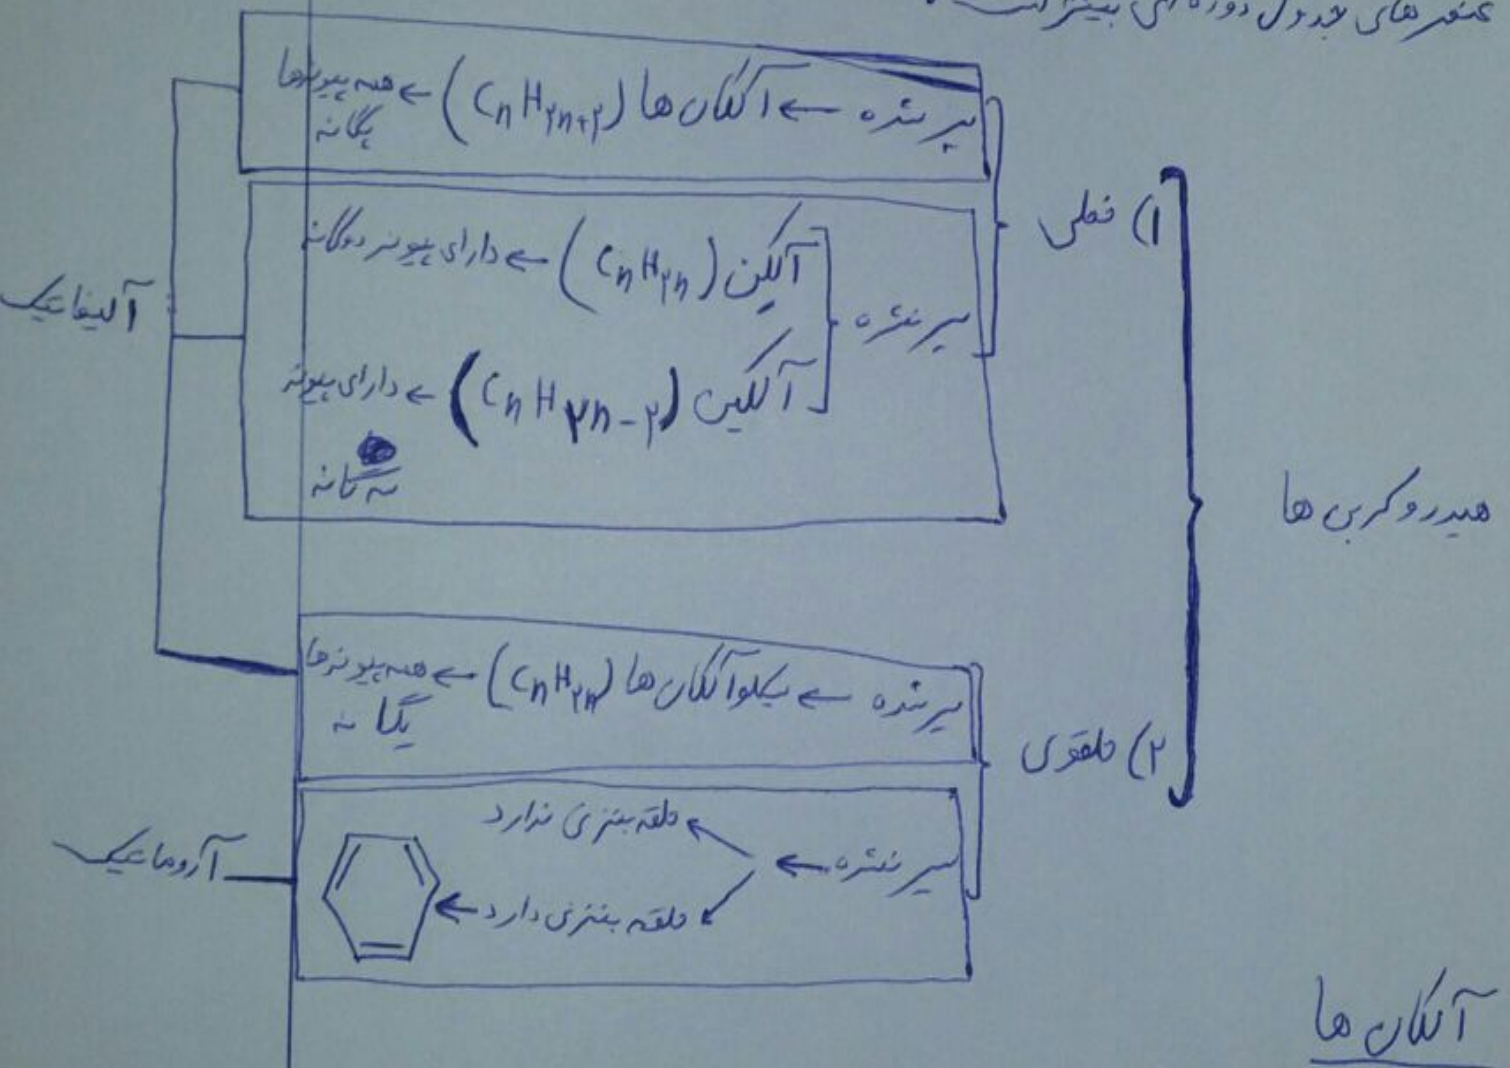 عنصرهای جدول دوره ای بیشتر است.
هیدروکربن ها
۱) خطی
سیر شده ← آلکان ها (CnH۲n+۲) ← همه پیوندها یگانه
سیر نشده
آلکن (CnH۲n) ← دارای پیوند دوگانه
آلکین (CnH۲n-۲) ← دارای پیوند
سه گانه
آلیفاتیک
۲) حلقوی
سیر شده ← سیکلوآلکان ها (CnH۲n) ← همه پیوندها
یگانه
سیر نشده ←
حلقه بنزنی ندارد
حلقه بنزنی دارد ←
آروماتیک
آلکان ها